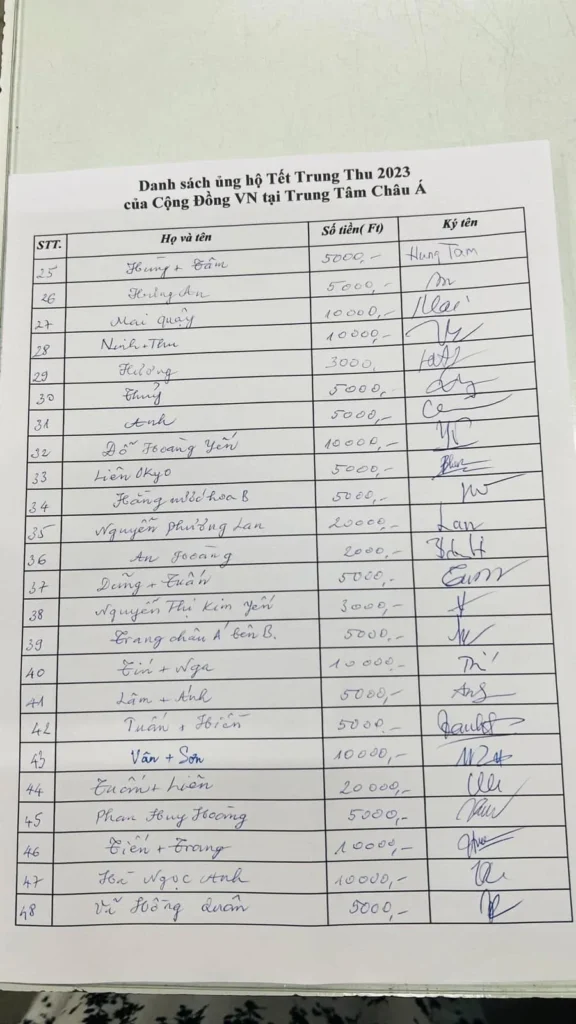 Danh sách ủng hộ Tết Trung Thu 2023
của Cộng Đồng VN tại Trung Tâm Châu Á
STT. Họ và tên Số tiền( Ft) Ký tên
25 Hùng + Tâm 5000,- Hung Tam
26 Hương An 5000,-
27 Mai quậy 10000,- Mai
28 Ninh + Tâm 10000,-
29 Hương 3000,
30 Thuỷ 5000,-
31 Anh 5000,-
32 Đỗ Hoàng Yến 10000,-
33 Liên OKyo 5000,-
34 Hằng nước hoa B 5000,-
35 Nguyễn Phương Lan 20000,- Lan
36 An Hoàng 2000,-
37 Dũng + Tuấn 5000,-
38 Nguyễn Thị Kim Yến 3000,-
39 Trang châu Á bên B. 5000,-
40 Tín + Nga 10000,-
41 Lâm + Ánh 5000,-
42 Tuấn + Hiền 5000,-
43 Vân + Sơn 10000,-
44 Tuấn + Liên 20000,-
45 Phan Huy Hoàng 5000,-
46 Tiến + Trang 10000,-
47 Hà Ngọc Anh 10000,-
48 Vũ Hồng Quân 5000,-